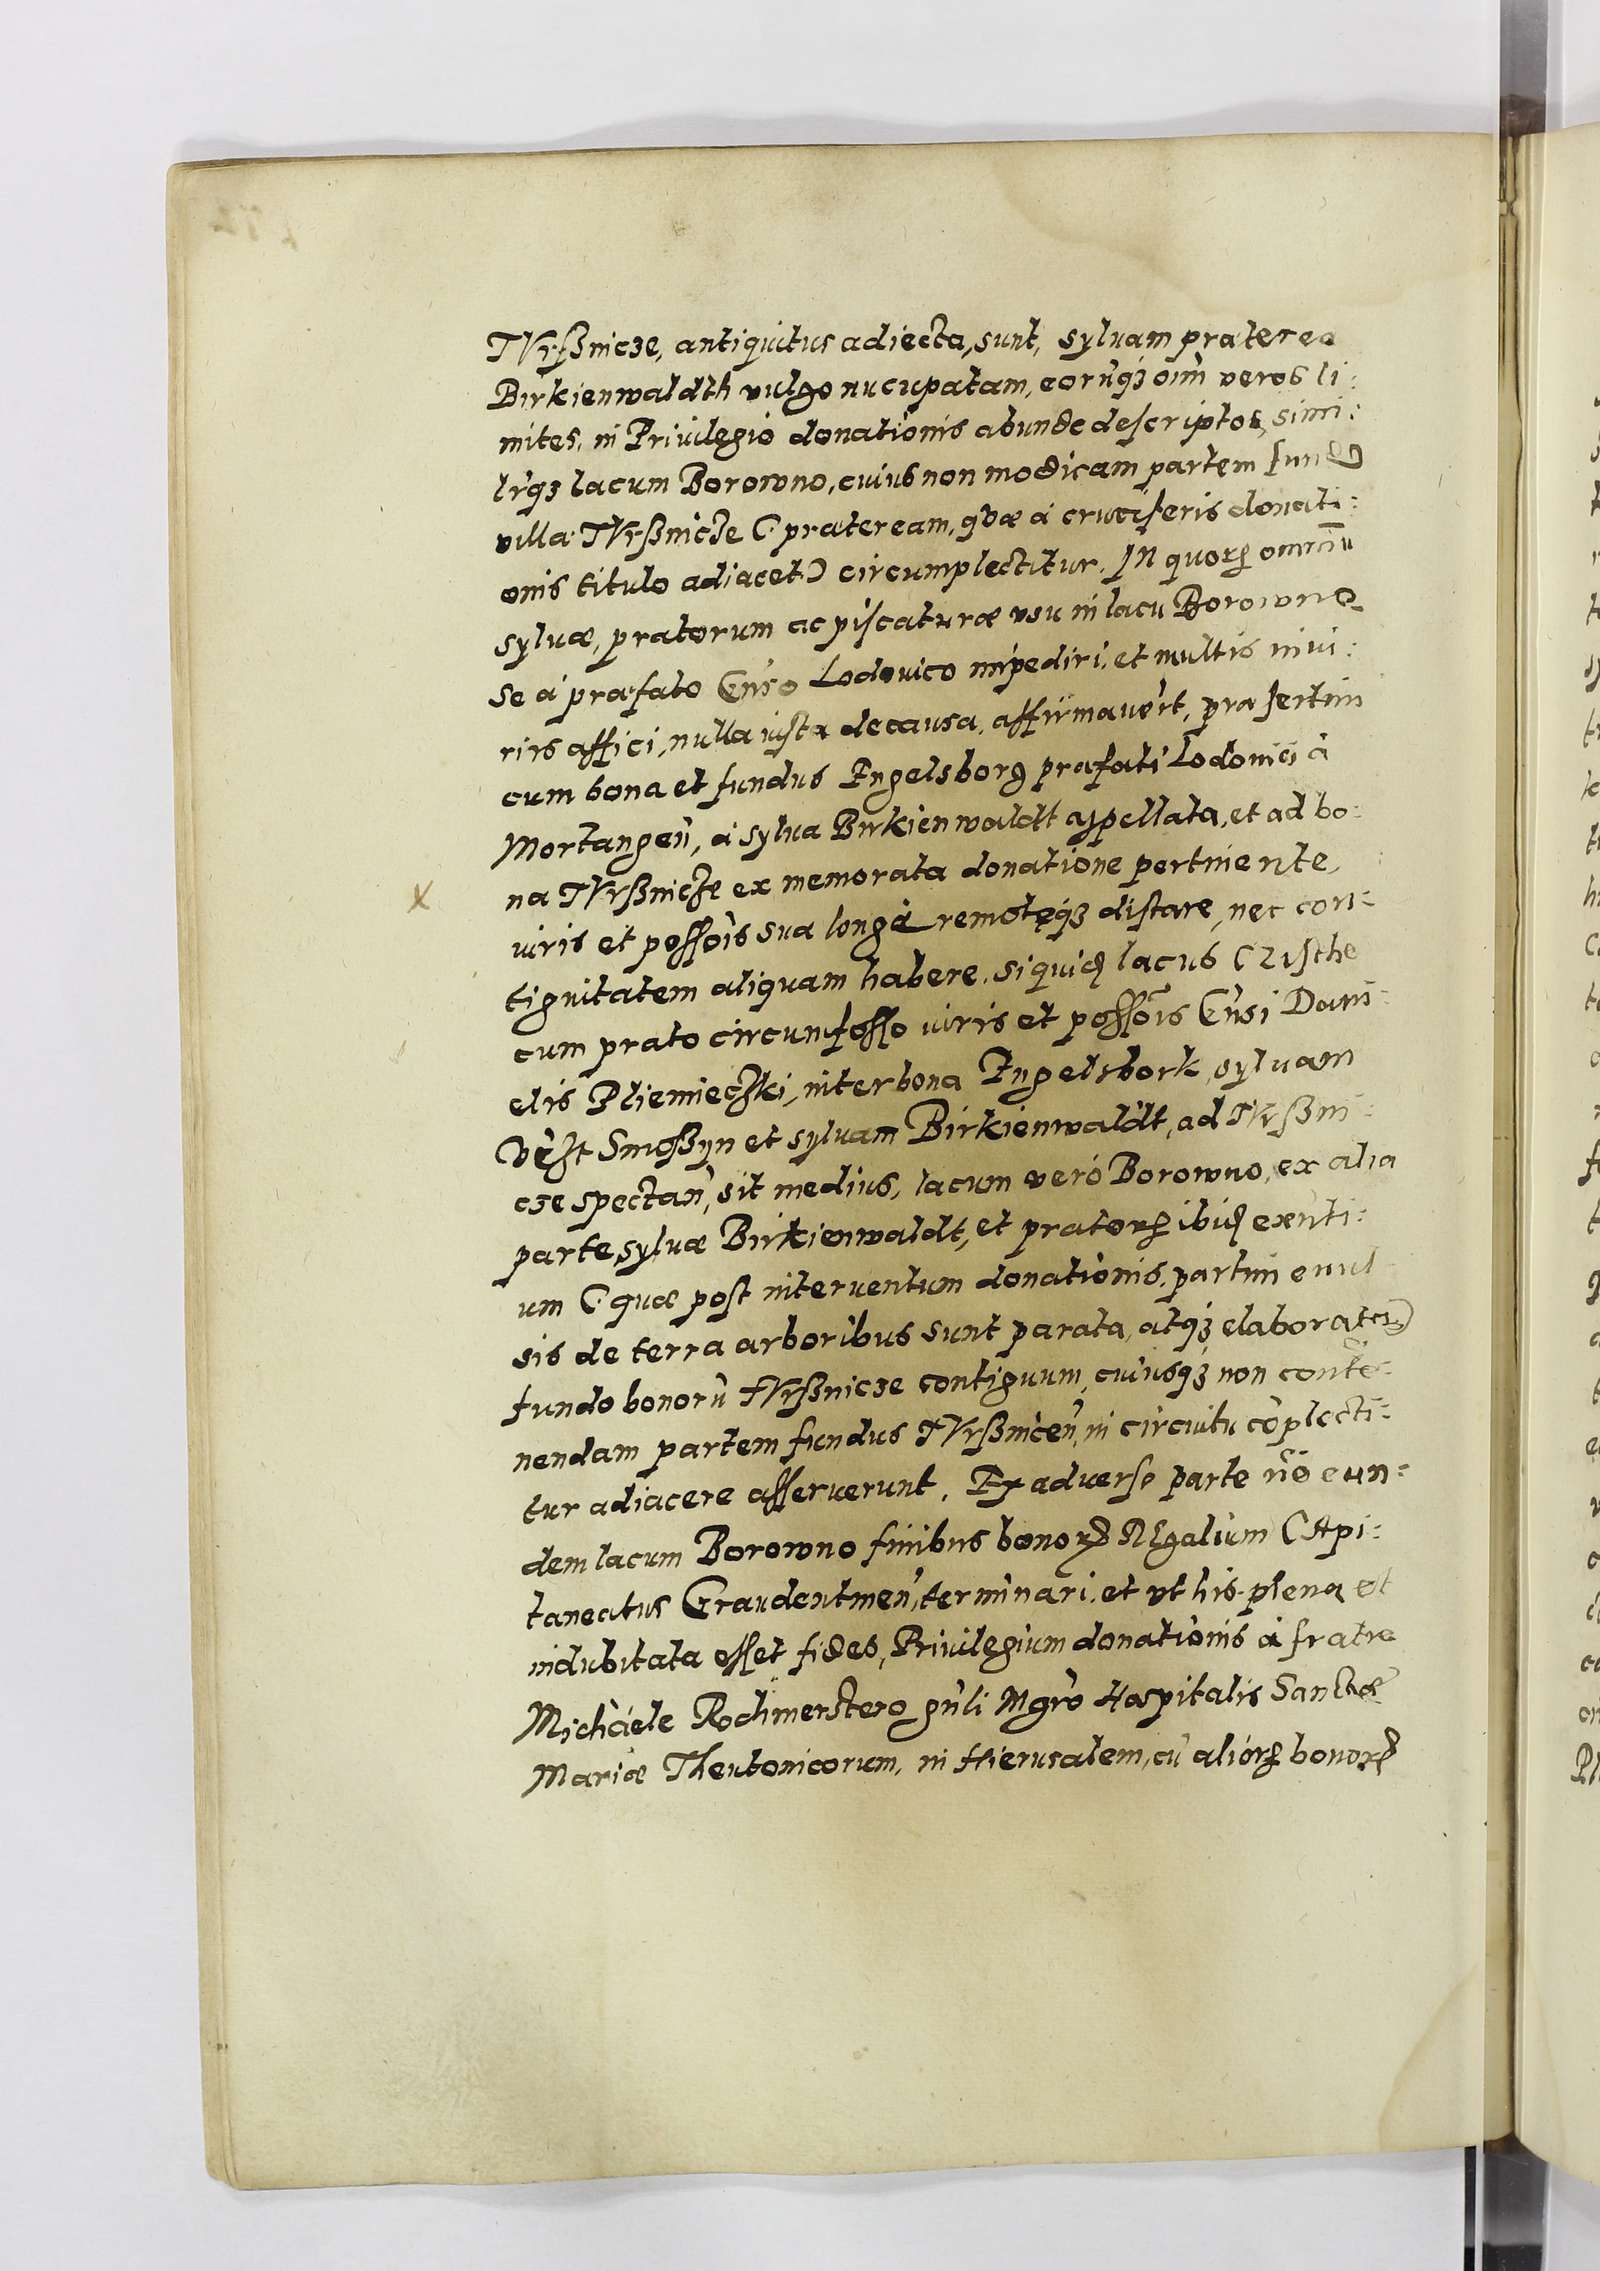 TVrßnicze, antiquitus adiecta, sunt, sylvam praterea
Birkienwaldth vulgo nucupatam, eorũqꝫ oim̃ veros li:
mites, in Privilegio donationis abunde descriptos, simi:
lr̃qꝫ lacum Borowno, cuius non modicam partem fund9
villæ TVrßnicze (: præteream, qvæ á cruciferis donati:
onis titulo adiacet:) circumplectitur. IN quorꝝ omniũ
sylvæ, pratorum ac piscaturæ vsu in lacu Borowno
se á præfato Gñso Lodovico impediri, et multis iniu:
riis affici, nulla iusta de causa, affirmavẽrt, præsertim
cum bona et fundus Engelsborg præfati Lodovici á
Mortangeñ, á sylva Birkienwaldt appellata, et ad bo:
na TVrßnicze ex memorata donatione pertinente,
iuris et possõis sua longé remotęqꝫ distare, nec con:
tiguitatem aliquam habere, siquiđ lacus Czisthe
cum prato circumfosso iuris et possõis Gñsi Dani:
elis Pliemieczki, inter bona Engelsbork, sylvam
Smoßyn et sylvam Birkienwaldt, ad TVrßni:
cze spectañ, sit medius, lacum veró Borowno, ex alia
parte sylvæ Birkienwaldt, et pratorꝝ ibiđ exñti:
um (: quæ post interventum donationis, partim evul
sis de terra arboribus sunt parata, atqꝫ elaborata:)
fundo bonorũ TVrßnicze contiguum, cuiusqꝫ non contẽ:
nendam partem fundus TVrßniceñ, in circuitu cõplecti:
tur adiacere asseruerunt. Ex adverso parte rõe eun:
dem lacum Borowno finibus bonorꝝ REgalium CApi:
taneatus Graudentineñ, terminari, et vt his plena et
indubitata esset fides, Privilegium donationis á fratre
Michäele Rochmerstero gñli Mgr̃o Hospitalis Sanctæ
Mariæ Theutonicorum, in Hierusalem, cũ aliorꝝ bonorꝝ